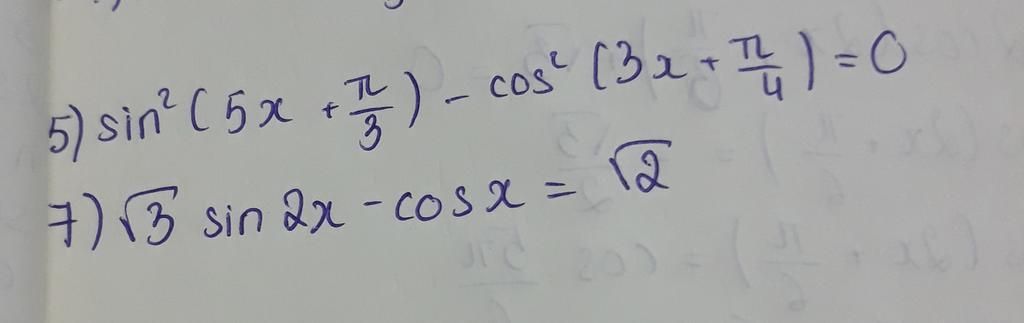 5) sin²(5x + π/3) - cos²(3x + π/4) = 0
7) √3 sin 2x - cosx = √2